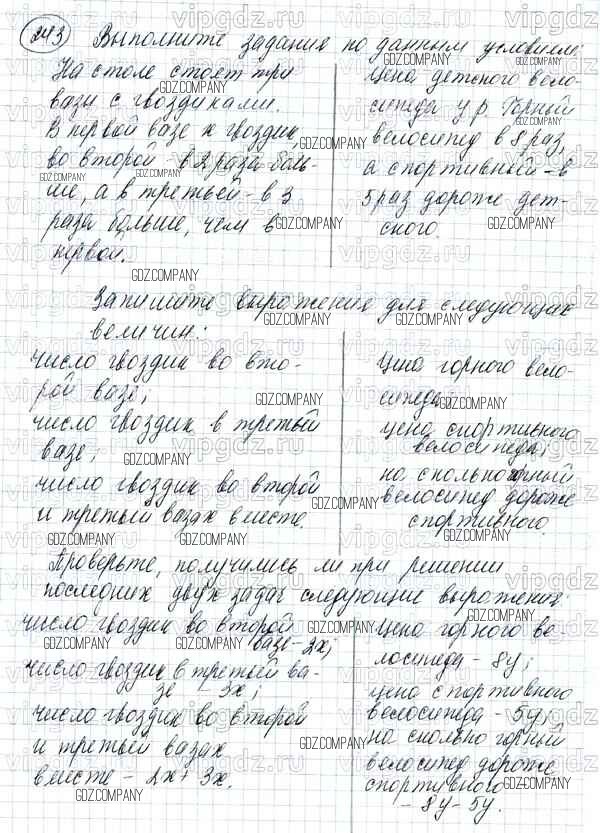 243 Выполните задания по данным условиям:
На столе стоят три
вазы с гвоздиками.
В первой вазе x гвоздик,
во второй - в 2 раза боль-
ше, а в третьей - в 3
раза больше, чем в
первой.
Цена детского вело-
сипеда y р. Горный
велосипед в 8 раз,
а спортивный - в
5 раз дороже дет-
ского.
Запишите выражения для следующих
величин:
число гвоздик во вто-
рой вазе;
число гвоздик в третьей
вазе;
число гвоздик во второй
и третьей вазах вместе.
Цена горного вело-
сипеда;
цена спортивного
велосипеда;
на сколько горный
велосипед дороже
спортивного.
Проверьте, получились ли при решении
последних двух задач следующие выражения:
число гвоздик во второй
вазе - 2x;
число гвоздик в третьей ва-
зе - 3x;
число гвоздик во второй
и третьей вазах
вместе - 2x + 3x.
Цена горного ве-
лосипеда - 8y;
цена спортивного
велосипеда - 5y;
на сколько горный
велосипед дороже
спортивного -
- 8y - 5y.
GDZ.COMPANY
vipgdz.ru